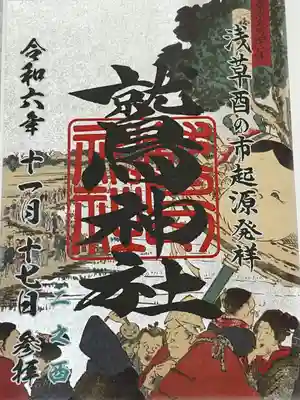 浅草酉の市起源発祥
鷲神社
令和六年十一月十七日参拝
二之酉